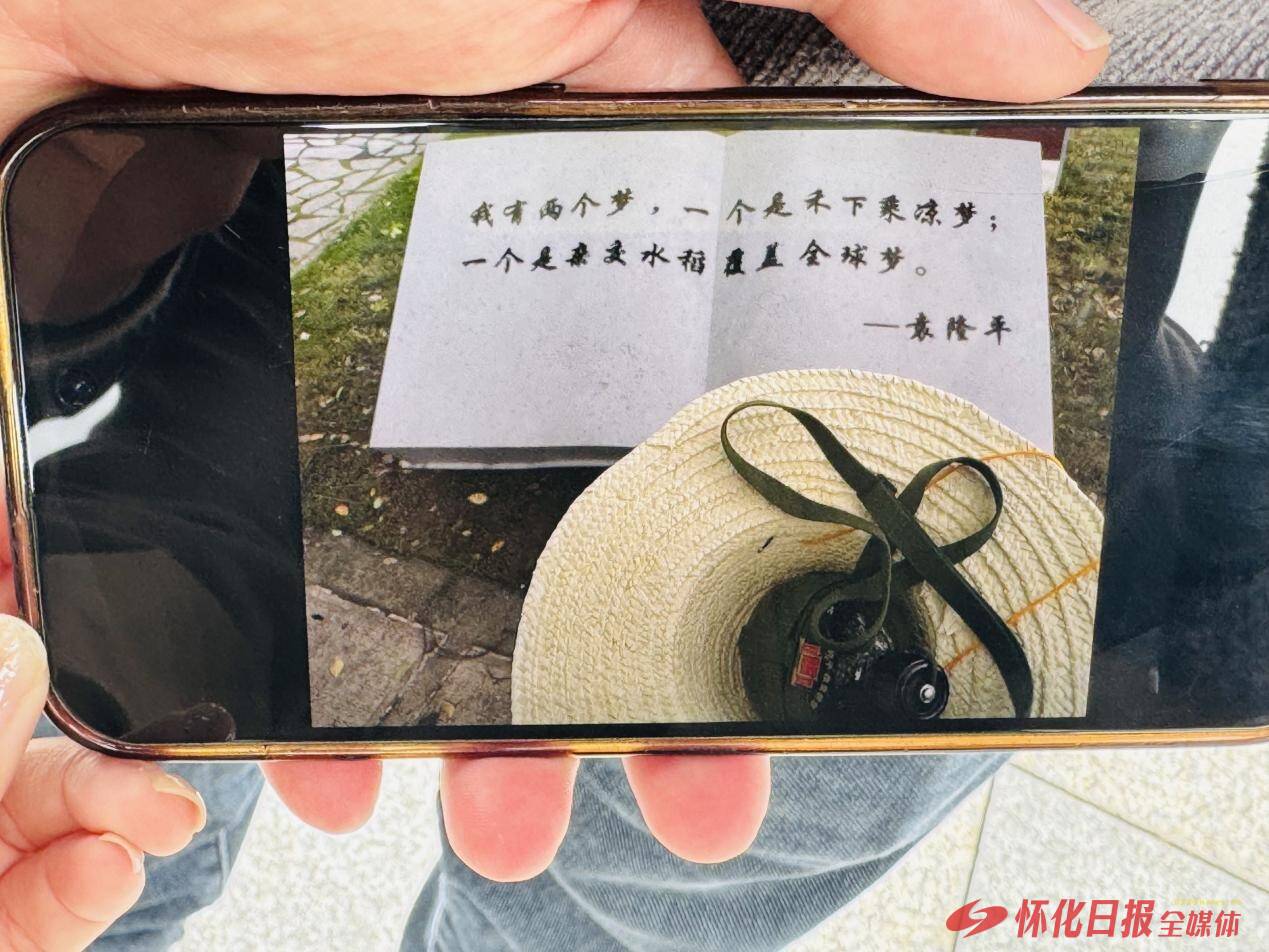 我有两个梦，一个是禾下乘凉梦；
一个是杂交水稻覆盖全球梦。
—袁隆平
怀化日报全媒体